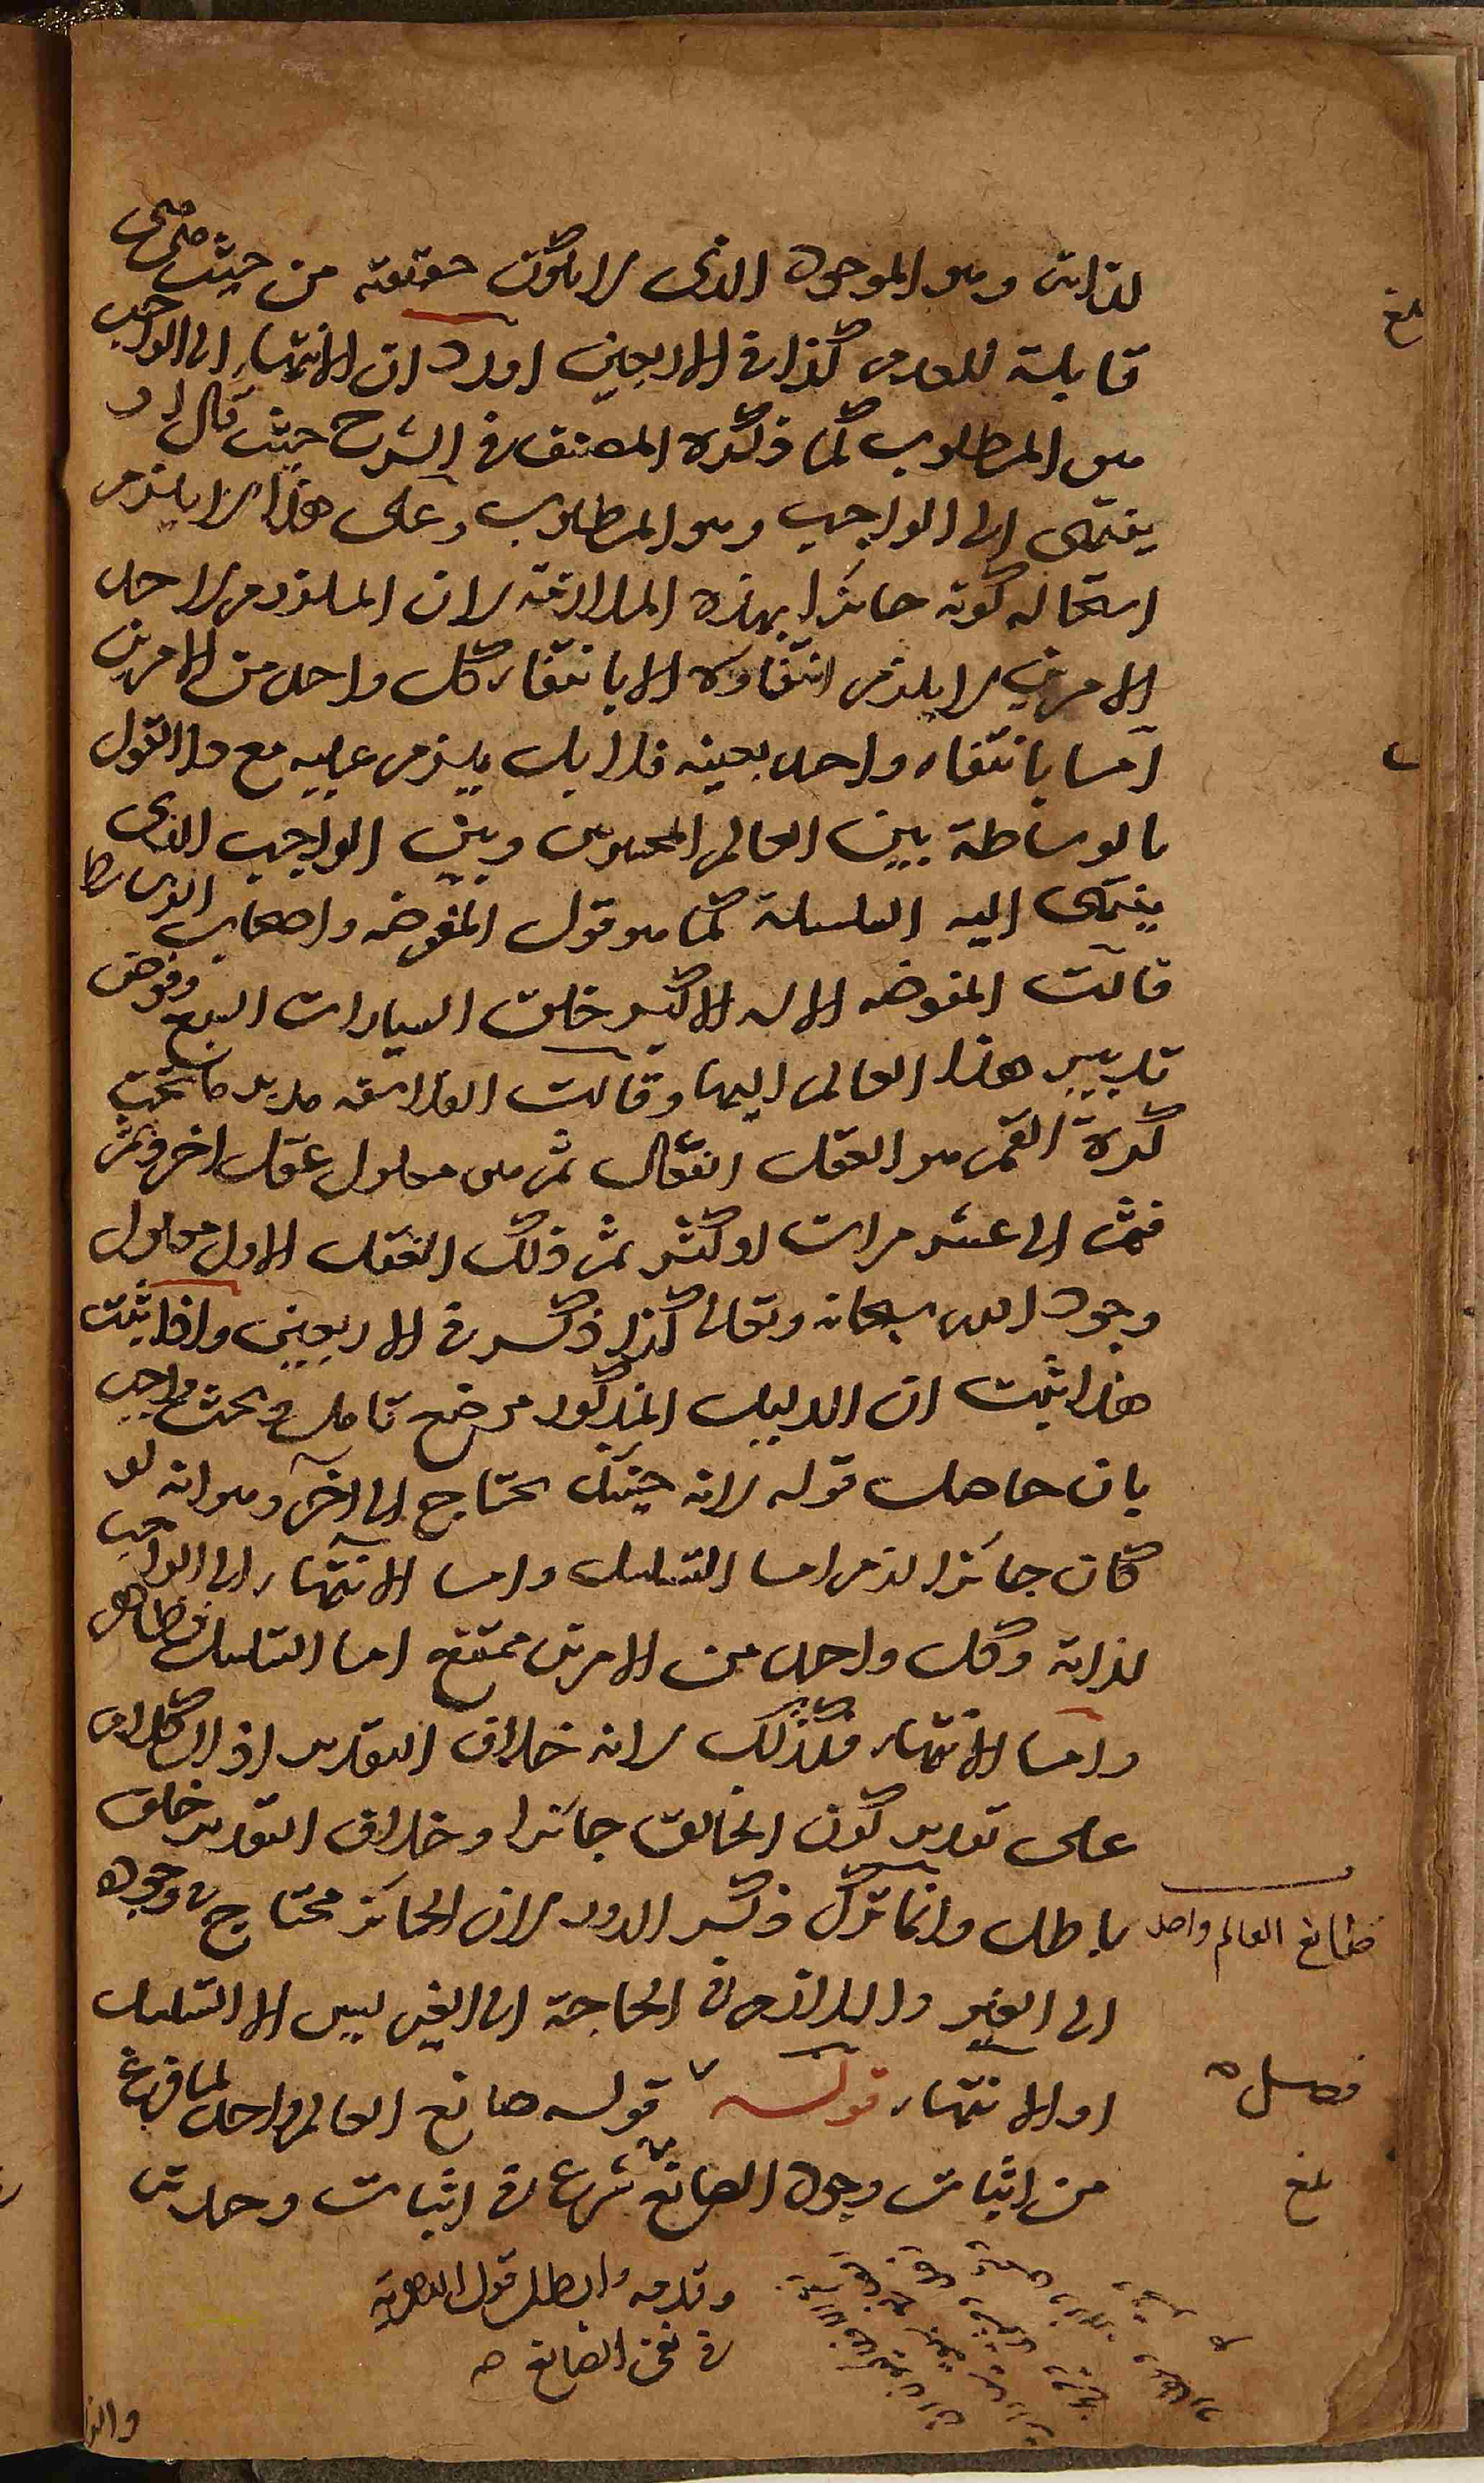 لذاته وهو الموجود الذى لا يكون حقيقته من حيث هى هى
قابلة للعدم كذا فى الاربعين اورد ان الانتهاء الى الواجب
هو المطلوب كما ذكره المصنف فى الشرح حيث قال او
ينتهى الى الواجب وهو المطلوب وعلى هذا لا يلزم
استحالة كونه جائزا بهذه الملازمة لان الملزوم لاحد
الامرين لا يلزم انتفاؤه الا بانتفاء كل واحد من الامرين
اما بانتفاء واحد بعينه فلا بل يلزم عليه مع هذا القول
بالوساطة بين العالم المحسوس وبين الواجب الذى
ينتهى اليه السلسلة كما هو قول المفوضه واصحاب الوسائط
قالت المفوضه الاله الاكبر خلق السيارات السبع وفوض
تدبير هذا العالم اليها وقالت الفلاسفه مدبر ما تحت
كرة القمر هو العقل الفعال ثم هو معلول عقل اخر وثم
فثم الى عشر مرات او اكثر ثم ذلك العقل الاول معلول
وجود الله سبحانه وتعالى كذا ذكر فى الاربعين واذا ثبت
هذا ثبت ان الدليل المذكور موضع تامل وبحث واجيب
بان حاصل قوله لانه حينئذ يحتاج الى اخره وهو انه لو
كان جائزا لزم اما التسلسل واما الانتهاء الى الواجب
لذاته وكل واحد من الامرين ممتنع اما التسلسل فظاهر
واما الانتهاء فكذلك لانه خلاف التقدير اذ الكلام
على تقدير كون الخالق جائزا وخلاف التقدير خلف
باطل وانما ترك ذكر الدور لان الجائز محتاج فى وجوده
الى الغير واللازم فى الحاجة الى الغير ليس الا التسلسل
او الانتهاء قوله قوله صانع العالم واحد لما فرغ
من اثبات وجود الصانع شرع فى اثبات وحدته
وقدمه وابطل قول الدهرية
فى نفى الصانع
والذ
بلغ
صانع العالم واحد
فصل
بلغ